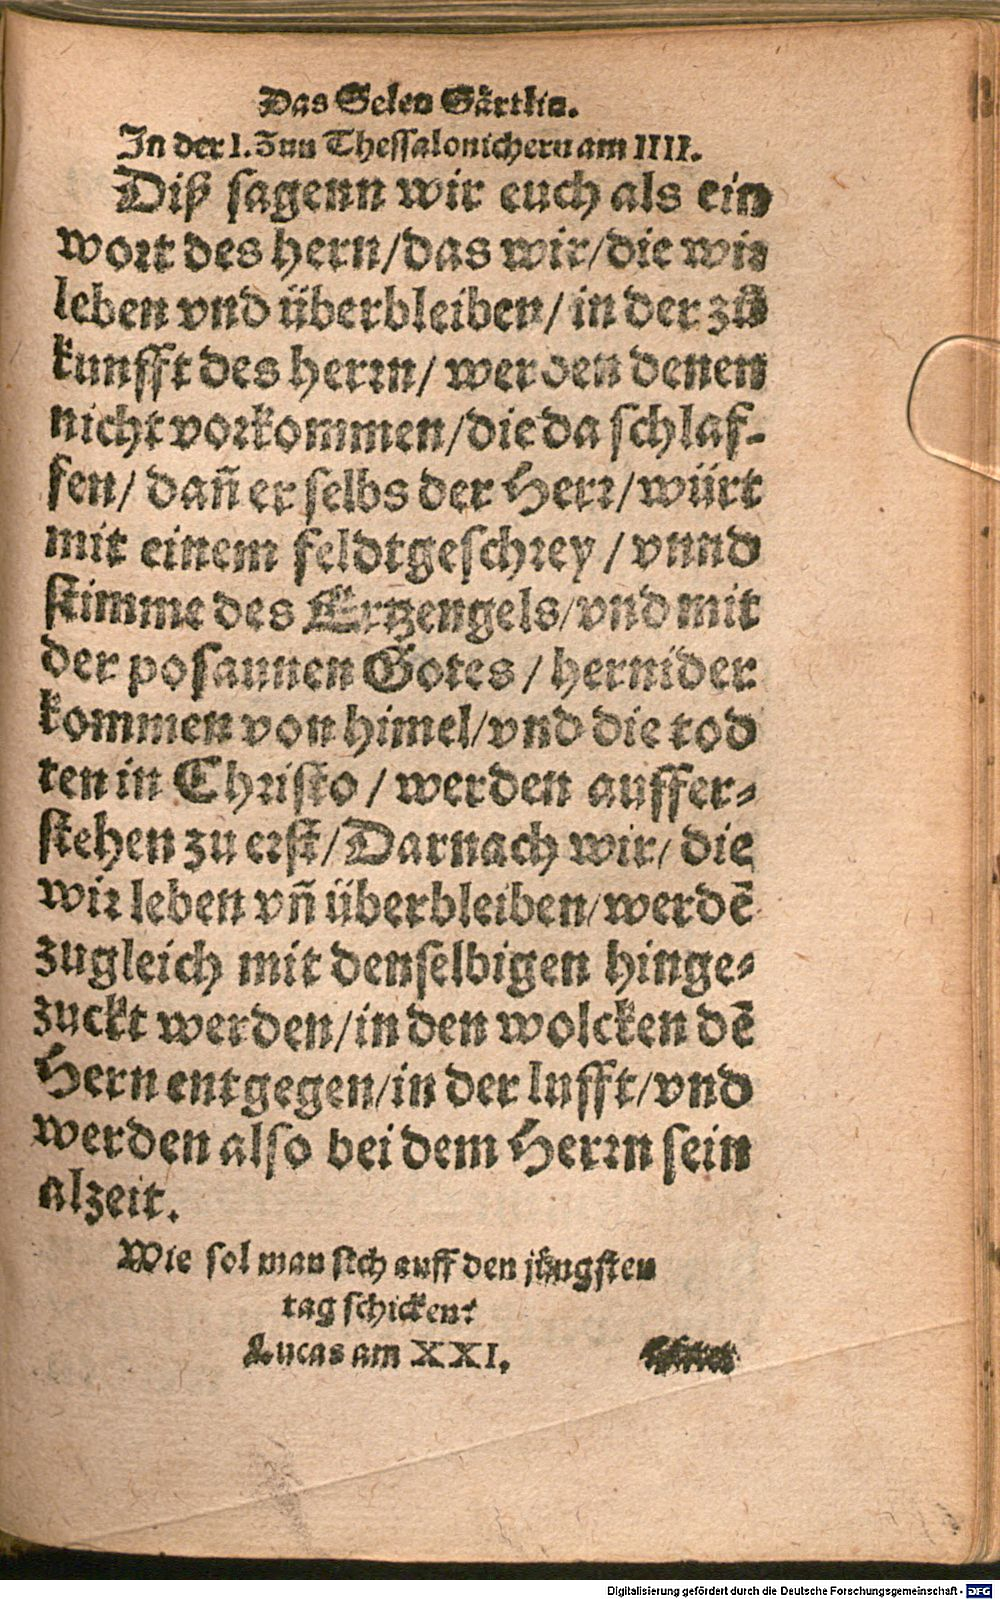 Das Selen Gärtlin.
In der I. Zun Thessalonichern am IIII.
Diß sagenn wir euch als ein
wort des hern/das wir/die wir
leben vnd überbleiben/in der zů
kunfft des herrn/ werden denen
nicht vorkommen/die da schlaf-
fen/ dañ er selbs der Herr/würt
mit einem feldtgeschrey / vnnd
stimme des Ertzengels/vnd mit
der posaunen Gotes / hernider
kommen von himel/vnd die tod
ten in Christo / werden auffer-
stehen zu erst/Darnach wir/ die
wir leben vñ überbleiben/werdē
zugleich mit denselbigen hinge-
zuckt werden/in den wolcken dē
Hern entgegen/in der lufft/vnd
werden also bei dem Herrn sein
alzeit.
Wie sol man sich auff den jüngsten
tag schicken?
Lucas am XXI.
Digitalisierung gefördert durch die Deutsche Forschungsgemeinschaft - DFG